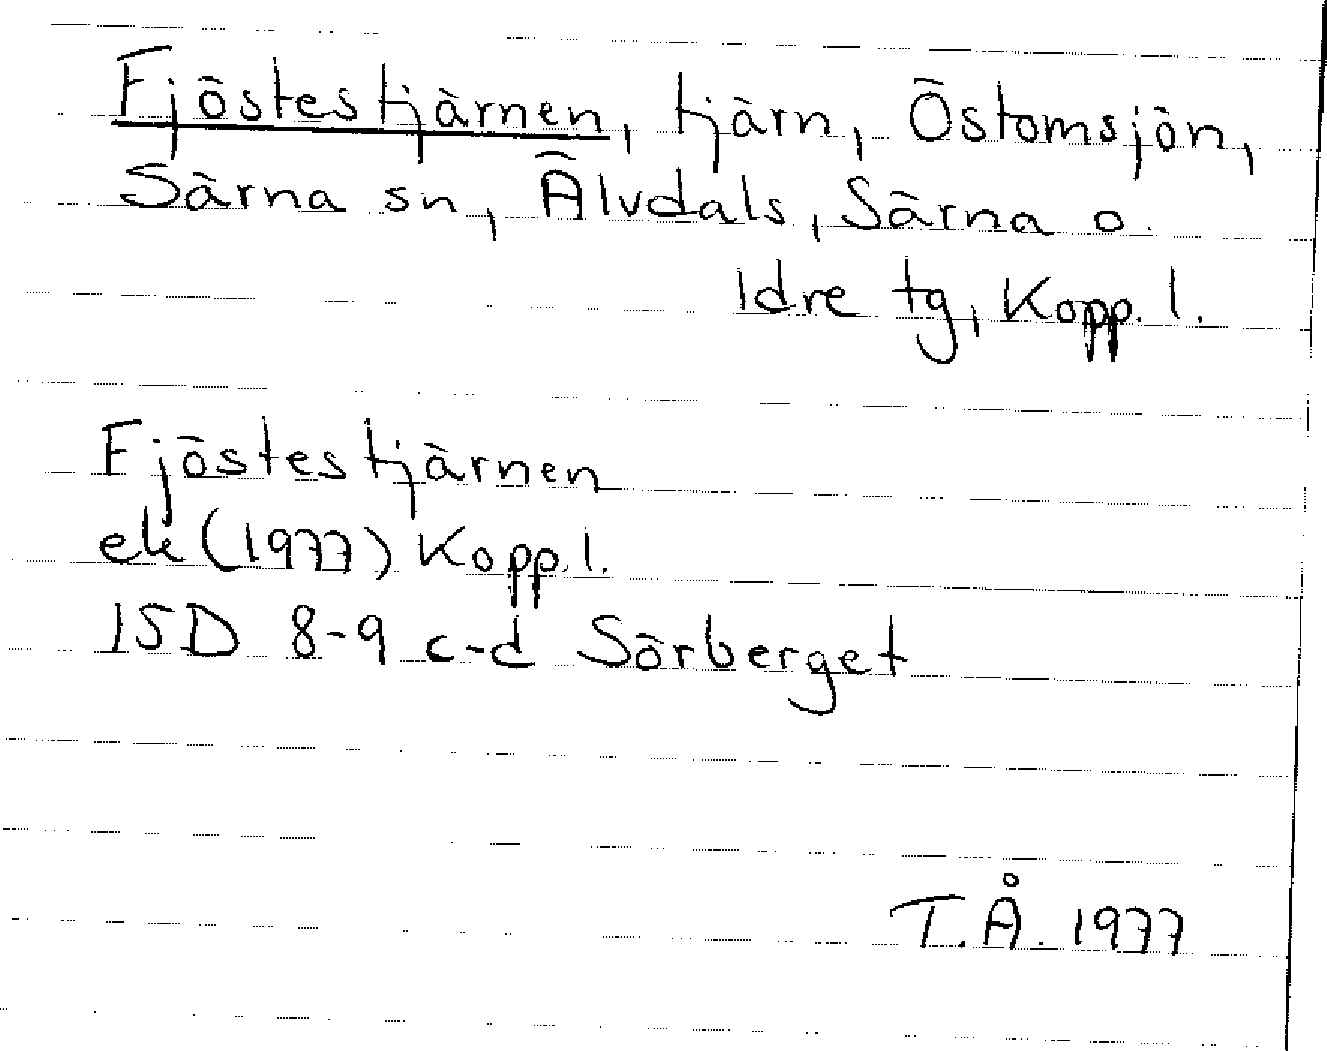 Fjöstestjärnen, tjärn, Östomsjön,
Särna sn, Älvdals, Särna o.
Idre tg, Kopp. l.
Fjöstestjärnen
ek (1977) Kopp. l.
15D 8-9 c-d Sörberget
T.Å. 1977